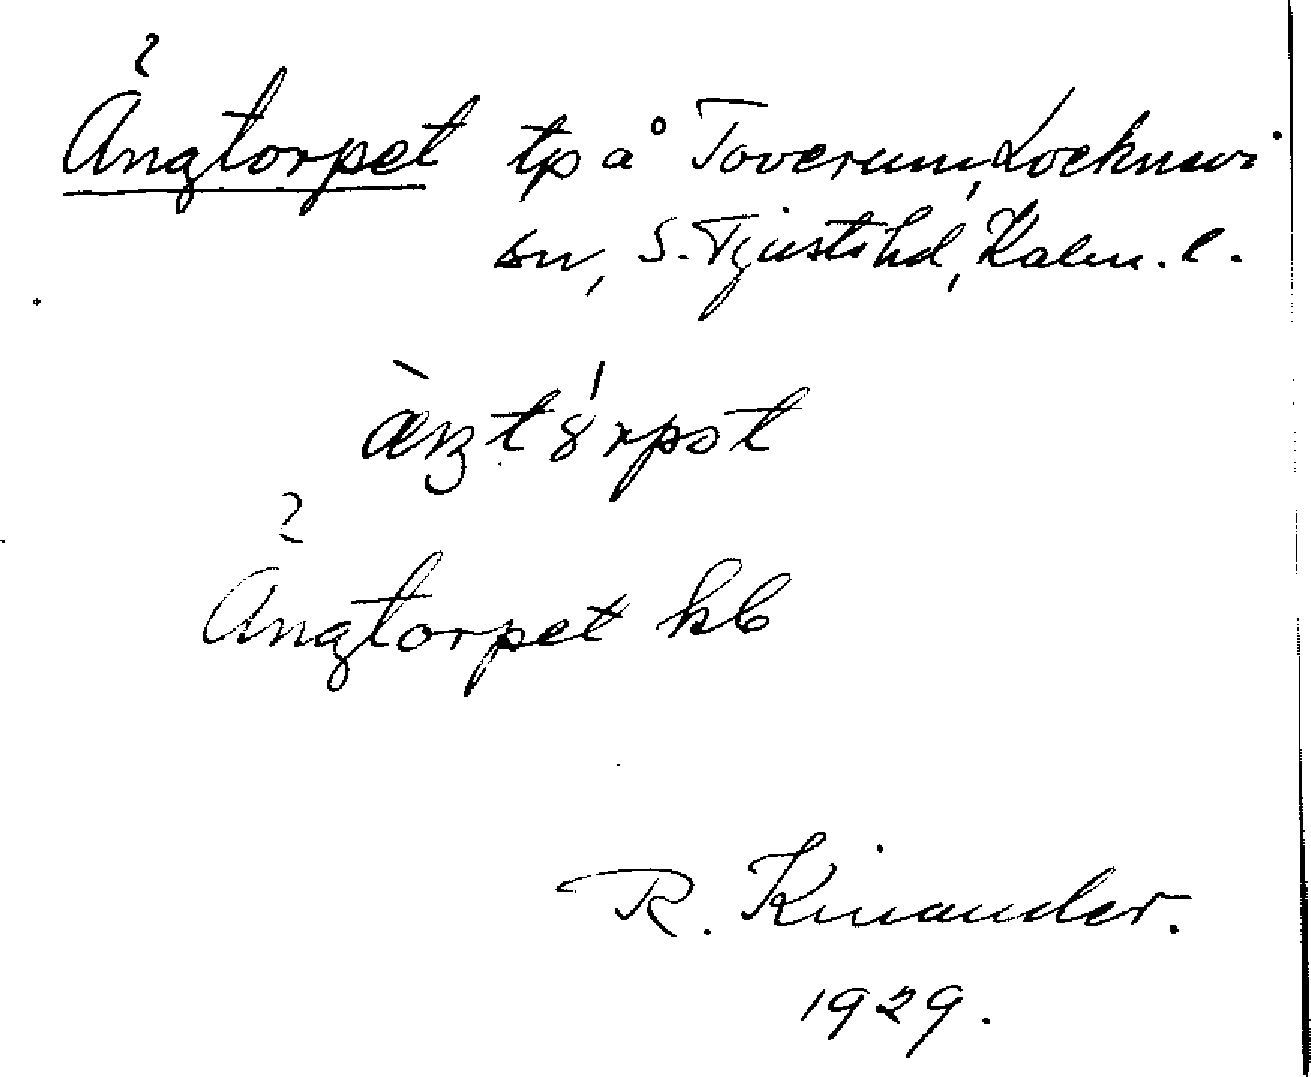 Ängtorpet tp å Toverum, Locknevi
sn, S. Tjusts hd, Kalm. l.
æ̀ŋtórpət
Ängtorpet kb
R. Kinander.
1929.